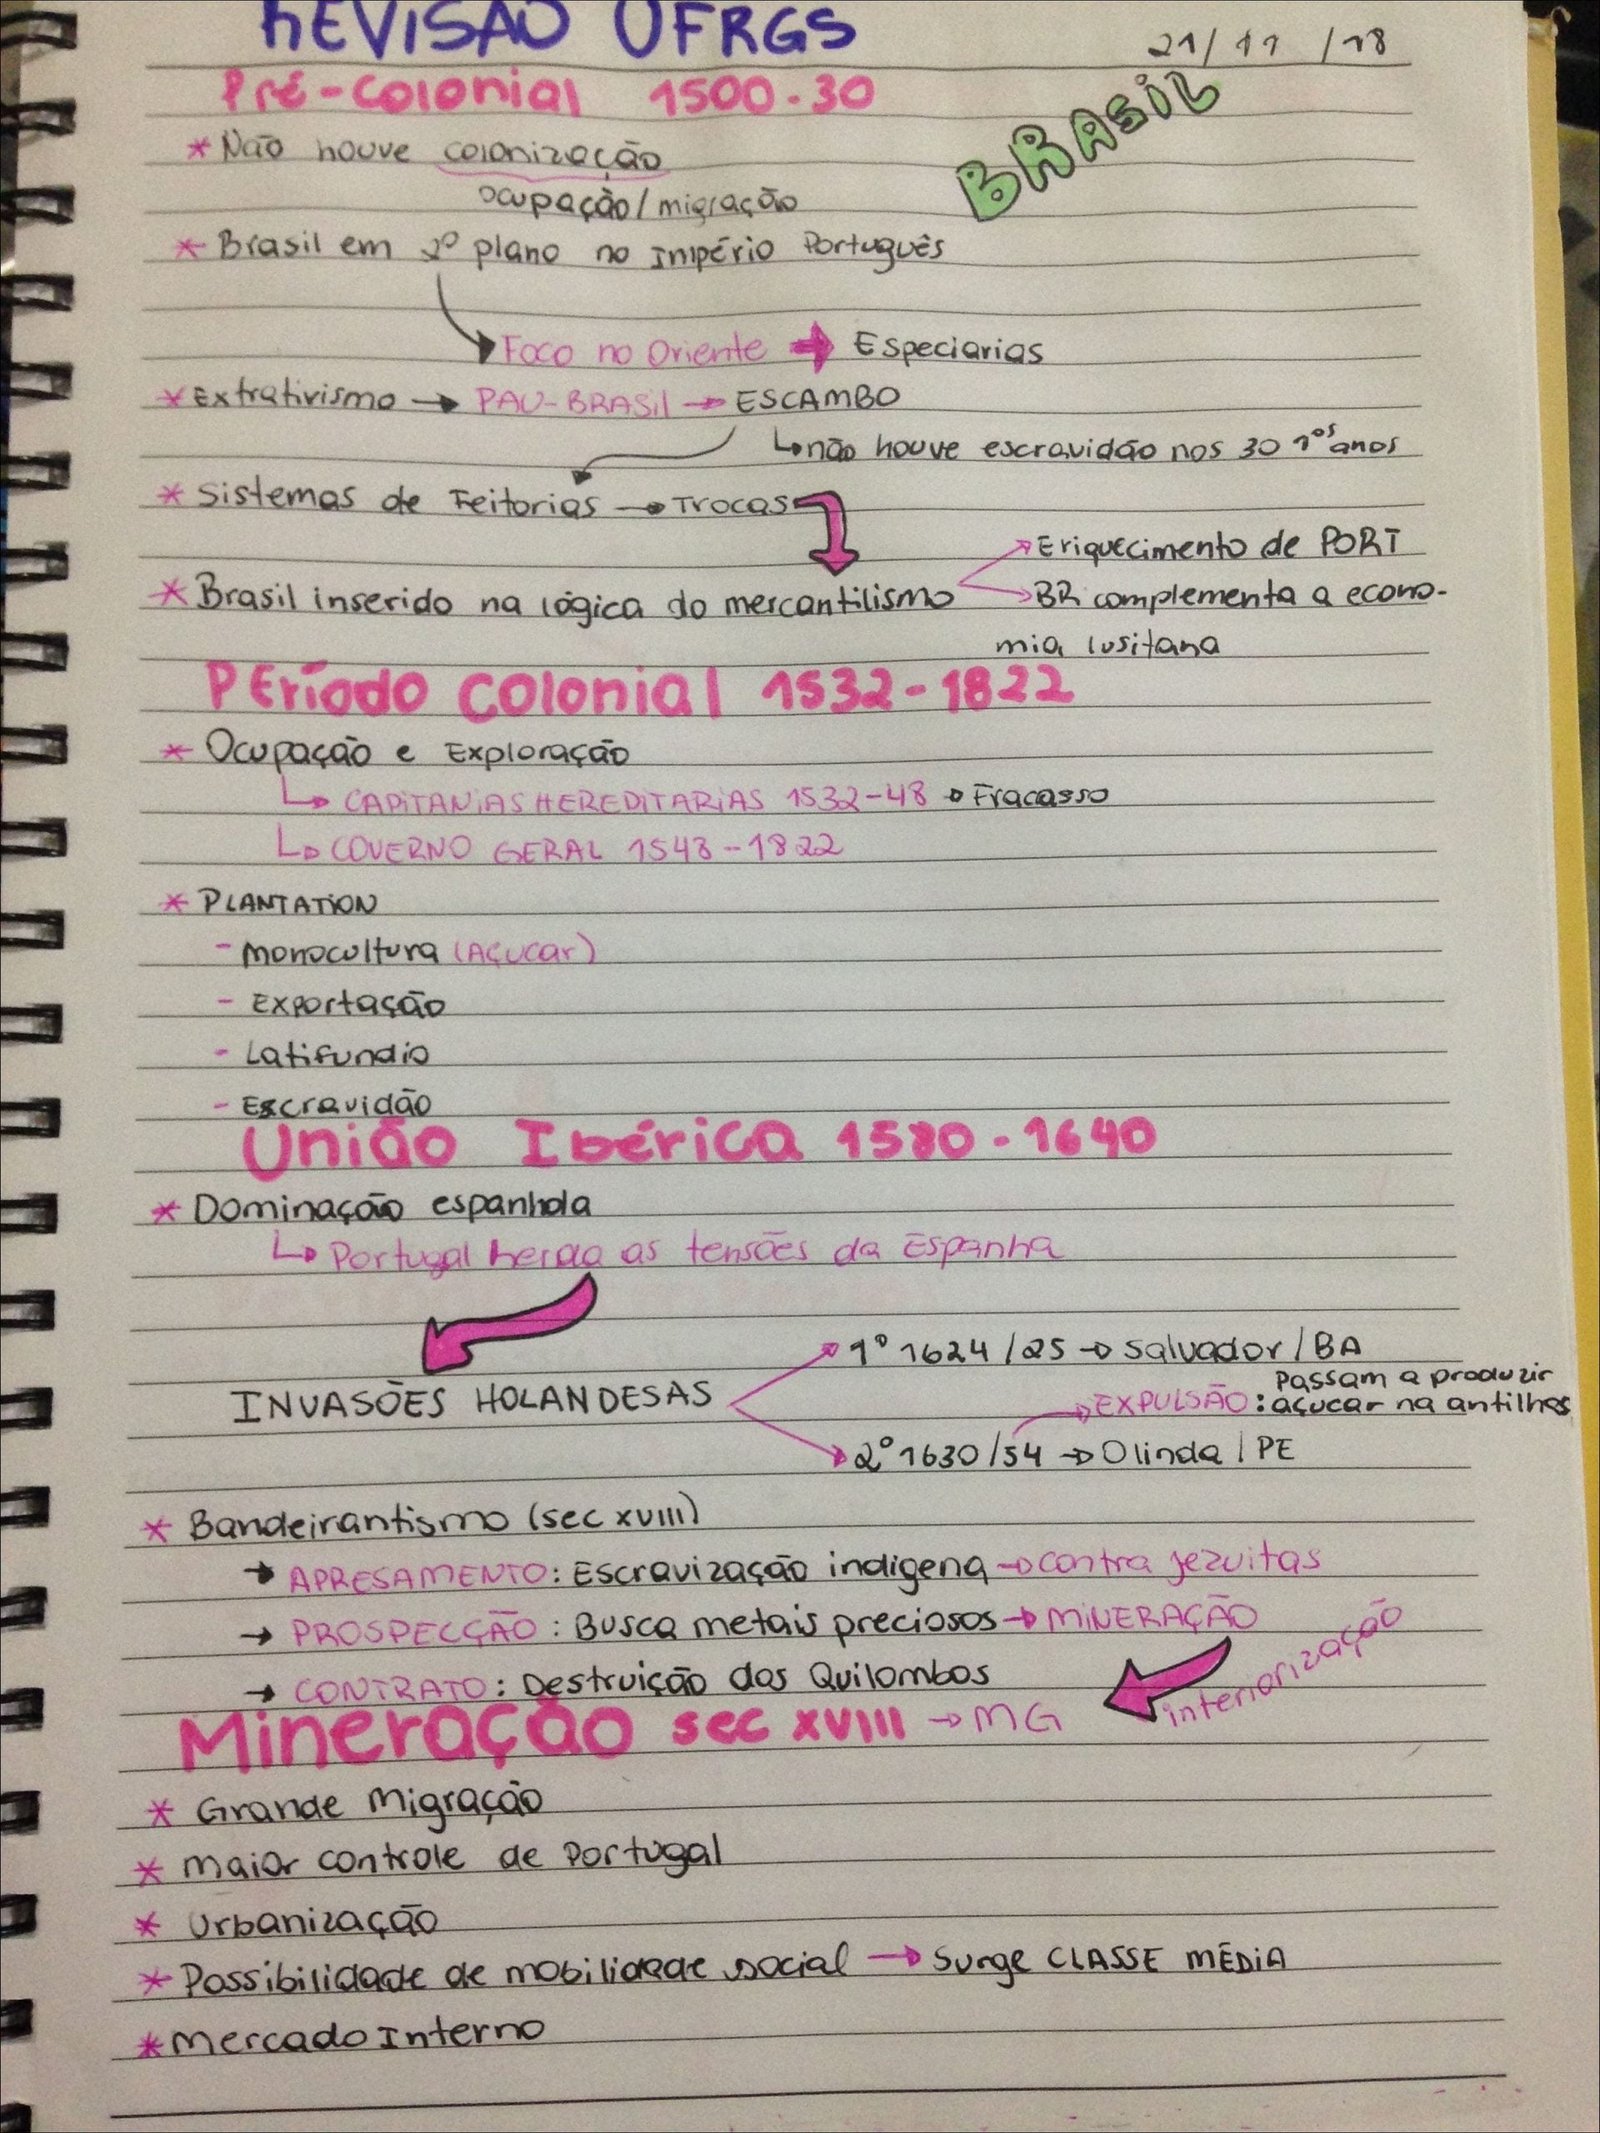 REVISÃO UFRGS
21/11/18
Pré-colonial 1500-30
BRASIL
* Não houve colonização
ocupação/migração
* Brasil em 2º plano no Império Português
Foco no Oriente → Especiarias
* Extrativismo → PAU-BRASIL → ESCAMBO
↳ não houve escravidão nos 30 1ºs anos
* Sistemas de Feitorias → Trocas
→ Eriquecimento de PORT
* Brasil inserido na lógica do mercantilismo → BR complementa a econo-
mia lusitana
PEríodo colonial 1532-1822
* Ocupação e Exploração
↳ CAPITANIAS HEREDITARIAS 1532-48 → Fracasso
↳ GOVERNO GERAL 1548-1822
* PLANTATION
- Monocultura (Açucar)
- Exportação
- Latifundio
- Escravidão
União Ibérica 1580-1640
* Dominação espanhola
↳ Portugal herda as tensões da Espanha
→ 1º 1624/25 → Salvador/BA
Passam a produzir
INVASÕES HOLANDESAS → EXPULSÃO: açucar na antilhas
→ 2º 1630/54 → Olinda/PE
* Bandeirantismo (sec XVIII)
→ APRESAMENTO: Escravização indigena → contra jezuitas
→ PROSPECÇÃO: Busca metais preciosos → MINERAÇÃO
→ CONTRATO: Destruição dos Quilombos
interiorização
Mineração sec XVIII → MG
* Grande Migração
* Maior controle de Portugal
* Urbanização
* Possibilidade de mobilidade social → Surge CLASSE MÉDIA
* Mercado Interno